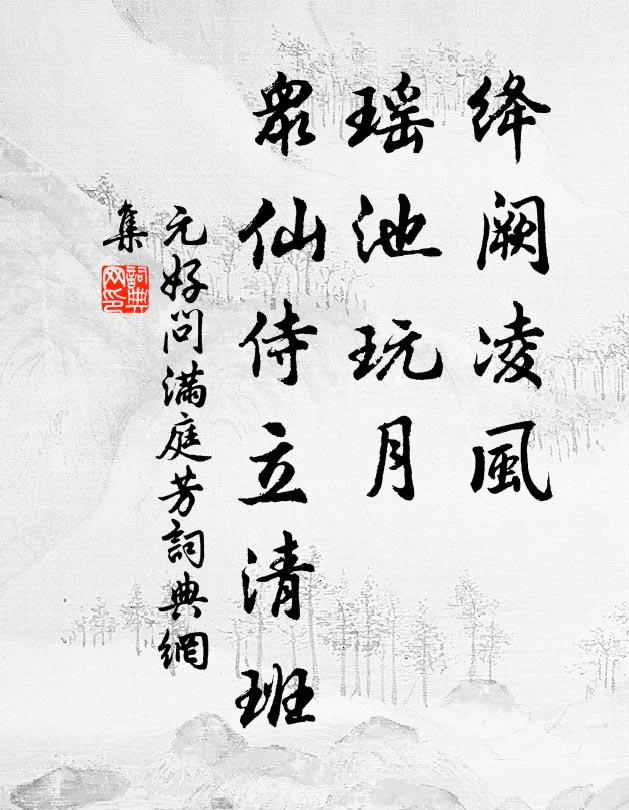 绛阙凌風
瑶池玩月
眾仙侍立清班
元好问满庭芳詞典網
集
詞典網印